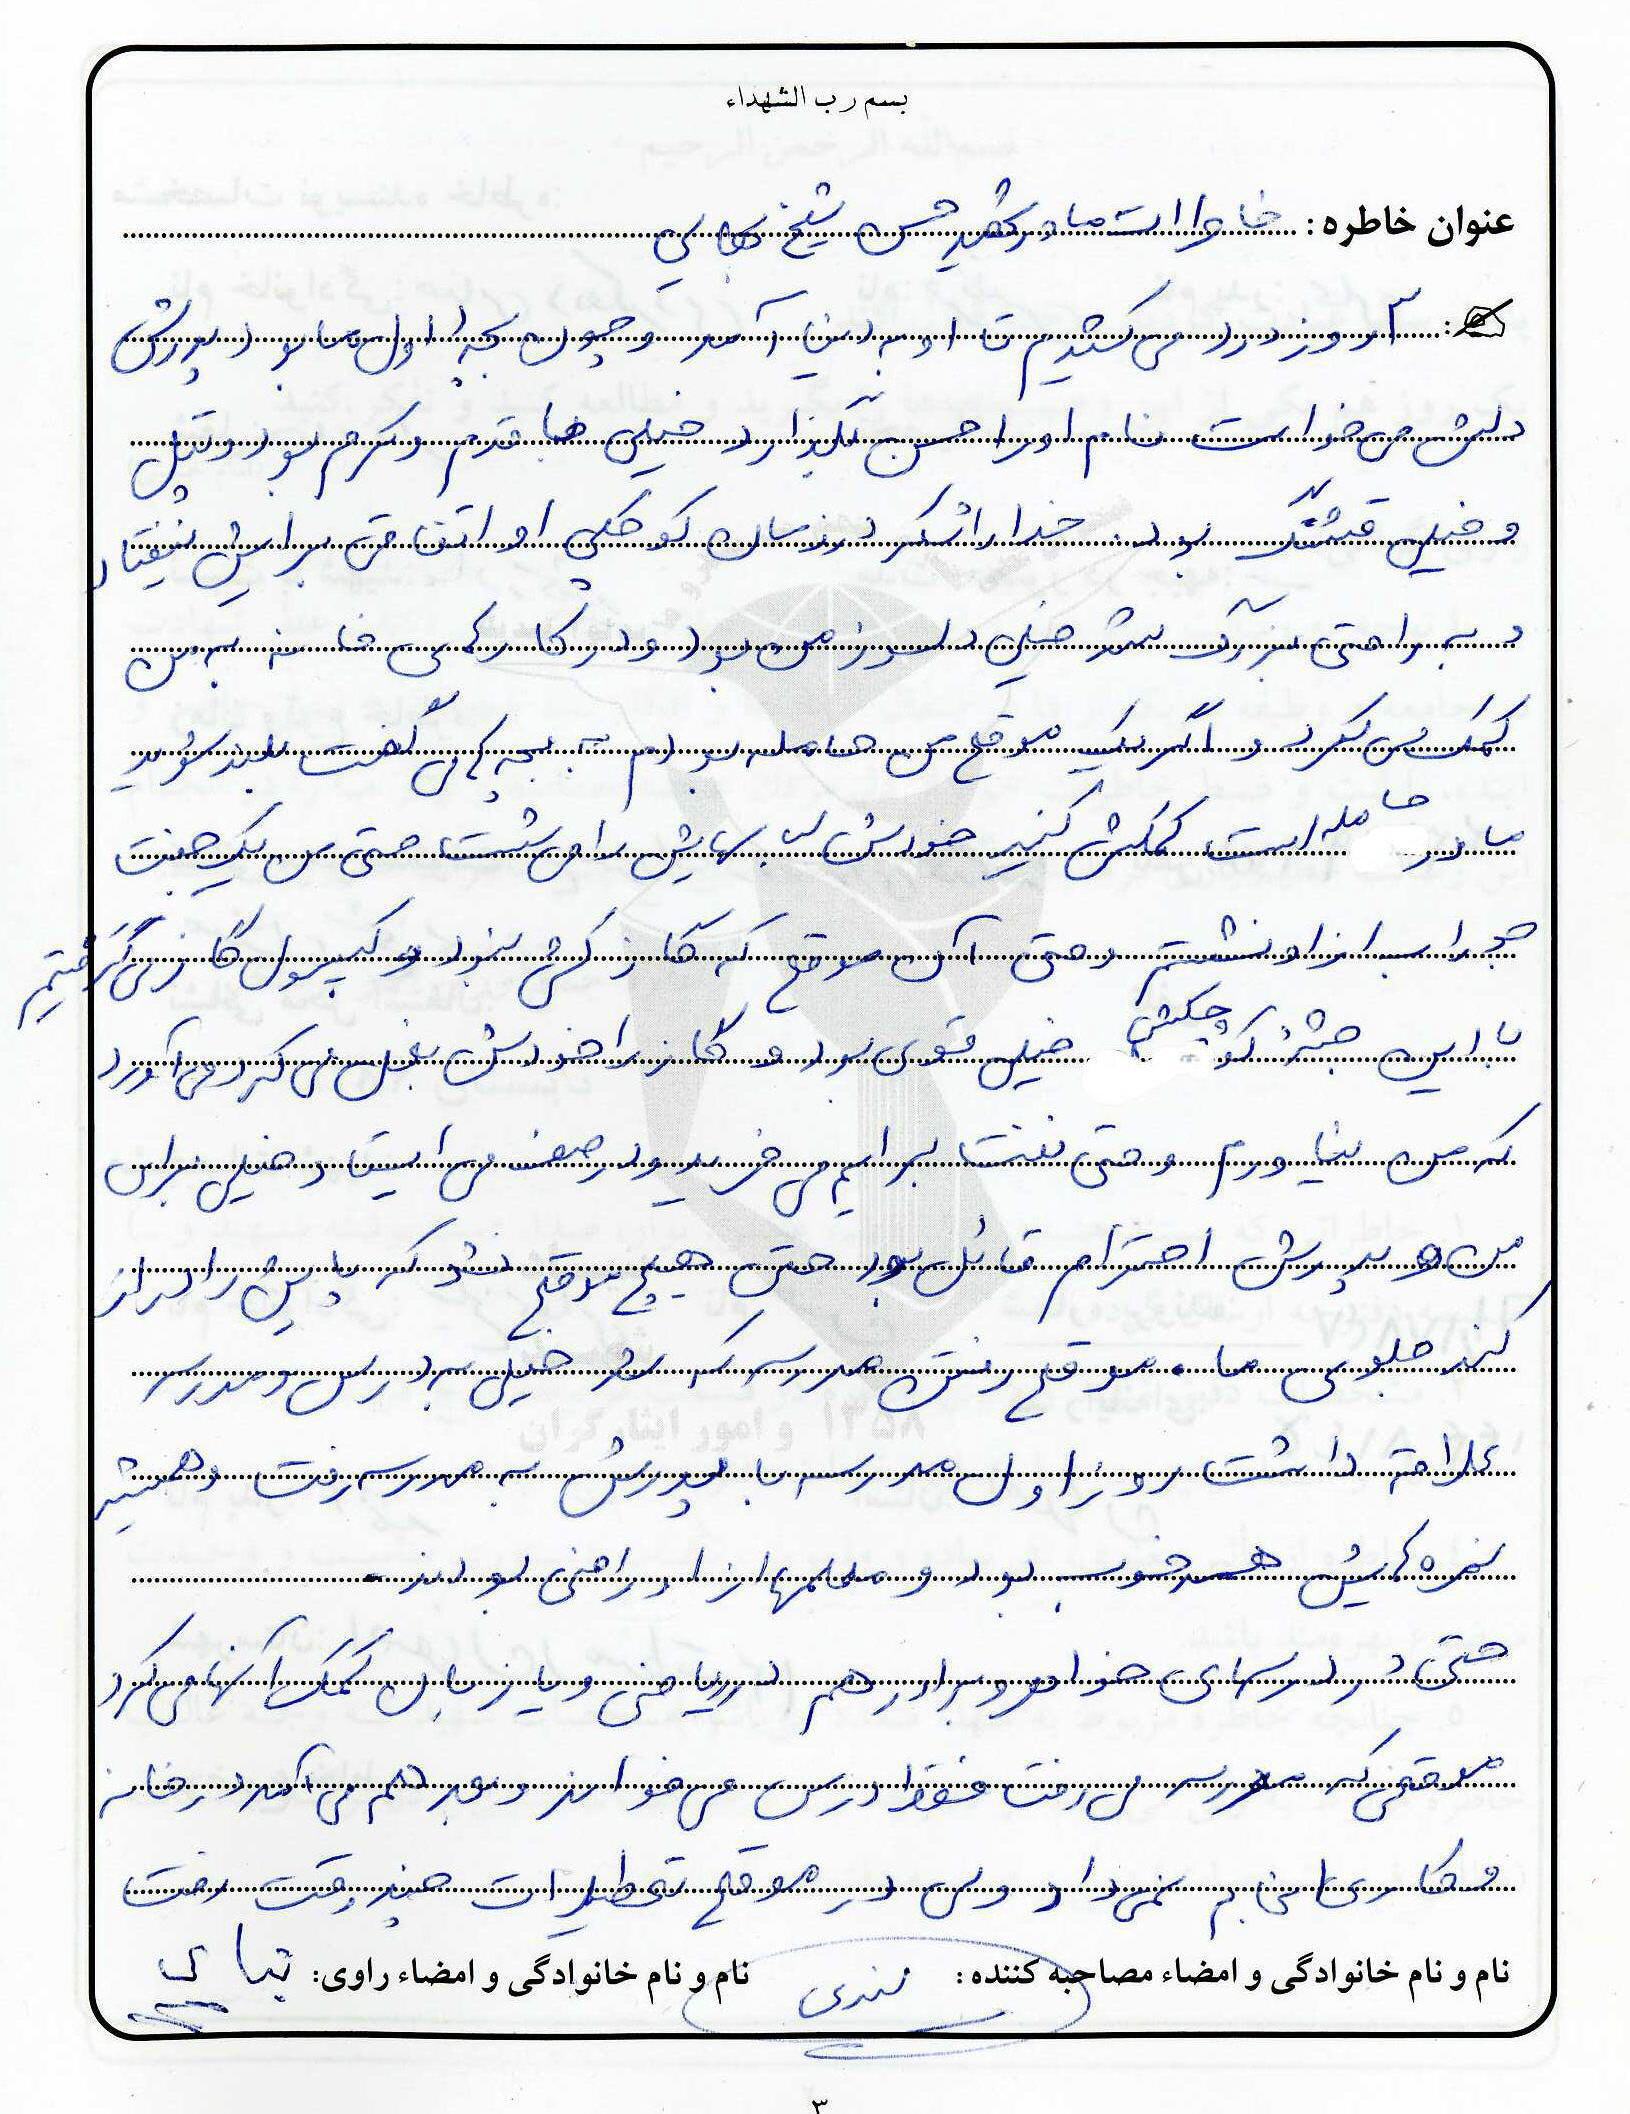 بسم رب الشهداء
عنوان خاطره: خاطرات مادر شهید حسن شیخ بهایی
۳ روز درد می کشیدم تا او به دنیا آمد و چون بچه اول ما بود پدرش
دلش می خواست نام او را حسن بگذارد خیلی خوش قدم و کرم بود و تپل
و خیلی قشنگ بود. خدا را شکر در زمان کوچکی او اتفاقی برایش نیفتاد
و به راحتی بزرگ شد خیلی دلسوز من بود و در کارهای خانه به من
کمک می کرد و اگر یک موقع من حامله بودم به بچه ها می گفت بلند شوید
مادر حامله است کمکش کنید خودش لباسهایش را می شست حتی من یک جفت
جوراب از او نشستم و حتی آن موقع که گاز کشی نبود و کپسول گاز می گرفتیم
با این جثه کوچکش خیلی قوی بود و گاز را خودش بغل می کرد می آورد
که من نیاورم و حتی نفت برایم می خرید و در صف می ایستاد و خیلی برای
من و پدرش احترام قائل بود حتی هیچ موقع نشد که پایش را دراز
کند جلوی ما. موقع رفتن مدرسه که شد خیلی به درس و مدرسه
علاقه داشت روز اول مدرسه با پدرش به مدرسه رفت و همیشه
نمره هایش هم خوب بود و معلمها از او راضی بودند.
حتی در درسهای خواهر و برادر هم در ریاضی و یا زبان کمک آنها می کرد
موقعی که مدرسه می رفت فقط درس می خواند و بعد هم می آمد در خانه
و کاری انجام نمی داد ولی در موقع تعطیلات چند وقت رفت
نام و نام خانوادگی و امضاء مصاحبه کننده: نام و نام خانوادگی و امضاء راوی:
۳